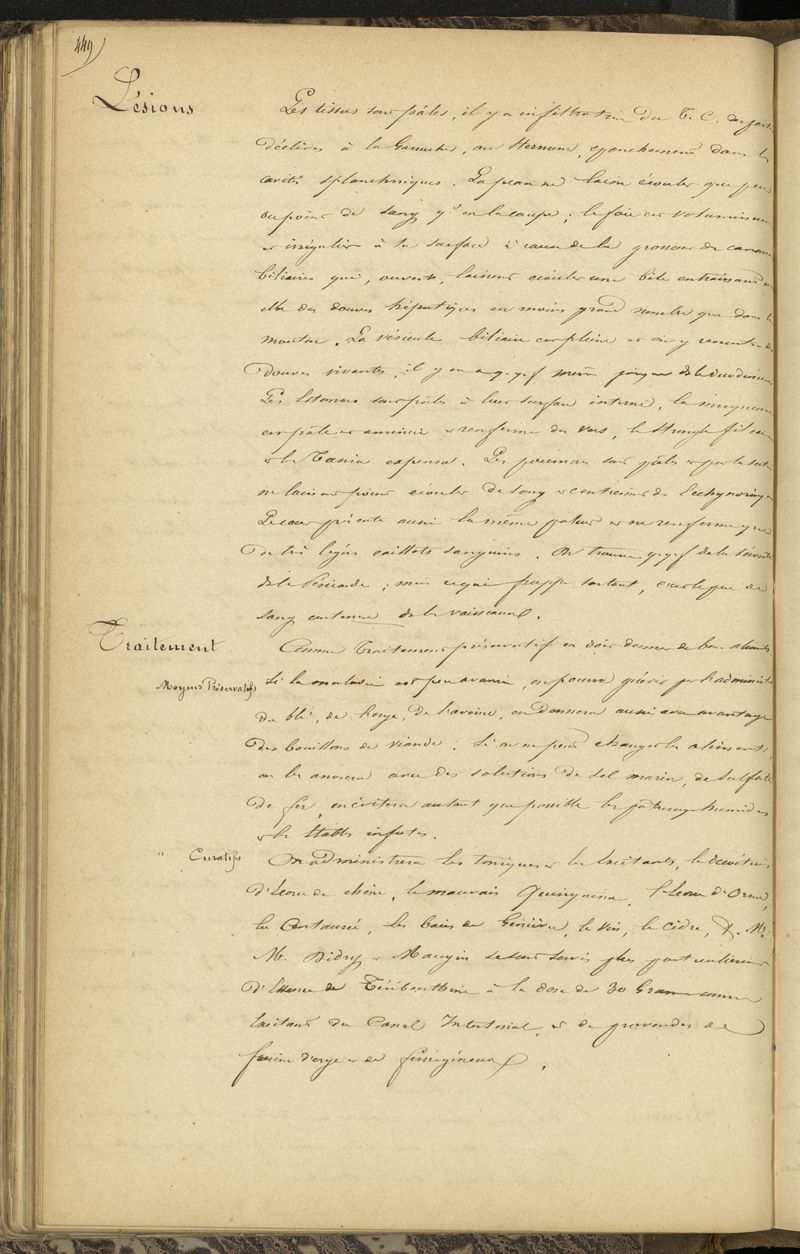 449)
Lésions
Les tissus sont pâles, il y a infiltration du T. C. des parties
déclives à la Ganache, au Sternum, épanchement dans les
cavités splanchniques. La peau ne laisse écouler que peu
ou point de sang qd on la coupe; le foie est volumineux
et irrégulier à sa surface à cause de la grosseur des canaux
biliaires qui, ouverts, laissent écouler une bile entrainant avec
elle des douves hépatiques en moins grand nombre que dans le
mouton. La vésicule biliaire est pleine et on y rencontre des
Douves vivantes, il y en a qqf même jusque ds le duodénum
Les Estomacs sont pâles à leur surface interne, la muqueuse
est pâle et amincie et renferme des vers, le strongle filaire
et le Tænia expensa. Les poumons sont pâles et par la section
ne laissent point écouler de sang et contiennent des Echynocoques
Le cœur présente aussi la même pâleur et ne renferme que
de très légers caillots sanguins. On trouve qqf de la sérosité
ds le Péricarde; mais ce qui frappe surtout, c'est le peu de
sang contenu ds les vaisseaux.
Traitement
Moyens Préservatifs
Comme Traitement préservatif on doit donner de bons aliments.
Si la maladie est peu avancée, on pourra guérir par l'administration
du blé, de l'orge, de l'avoine, on donnera aussi avec avantage
des bouillons de viande. Si on ne peut changer les aliments,
on les arrosera avec des solutions de sel marin, de sulfate
de fer, on évitera autant que possible les pâturages humides
et les Etables infectes.
" Curatifs
On administrera les toniques et les Excitants, les décoctions
d'Ecorce de chêne, le mauvais Quinquina, l'Ecorce d'Orme,
la Centaurée, les baies de Genièvre, le vin, le cidre, &. M.
M. Didry et Maugin se sont servis plus particulièrement
d'Essence de Térébenthine à la dose de 30 Grammes comme
Excitant du Canal Intestinal, et de provendes de
farine d'orge et de ferrugineux.